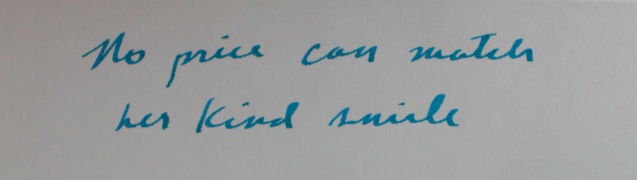 No price can match
her kind smile